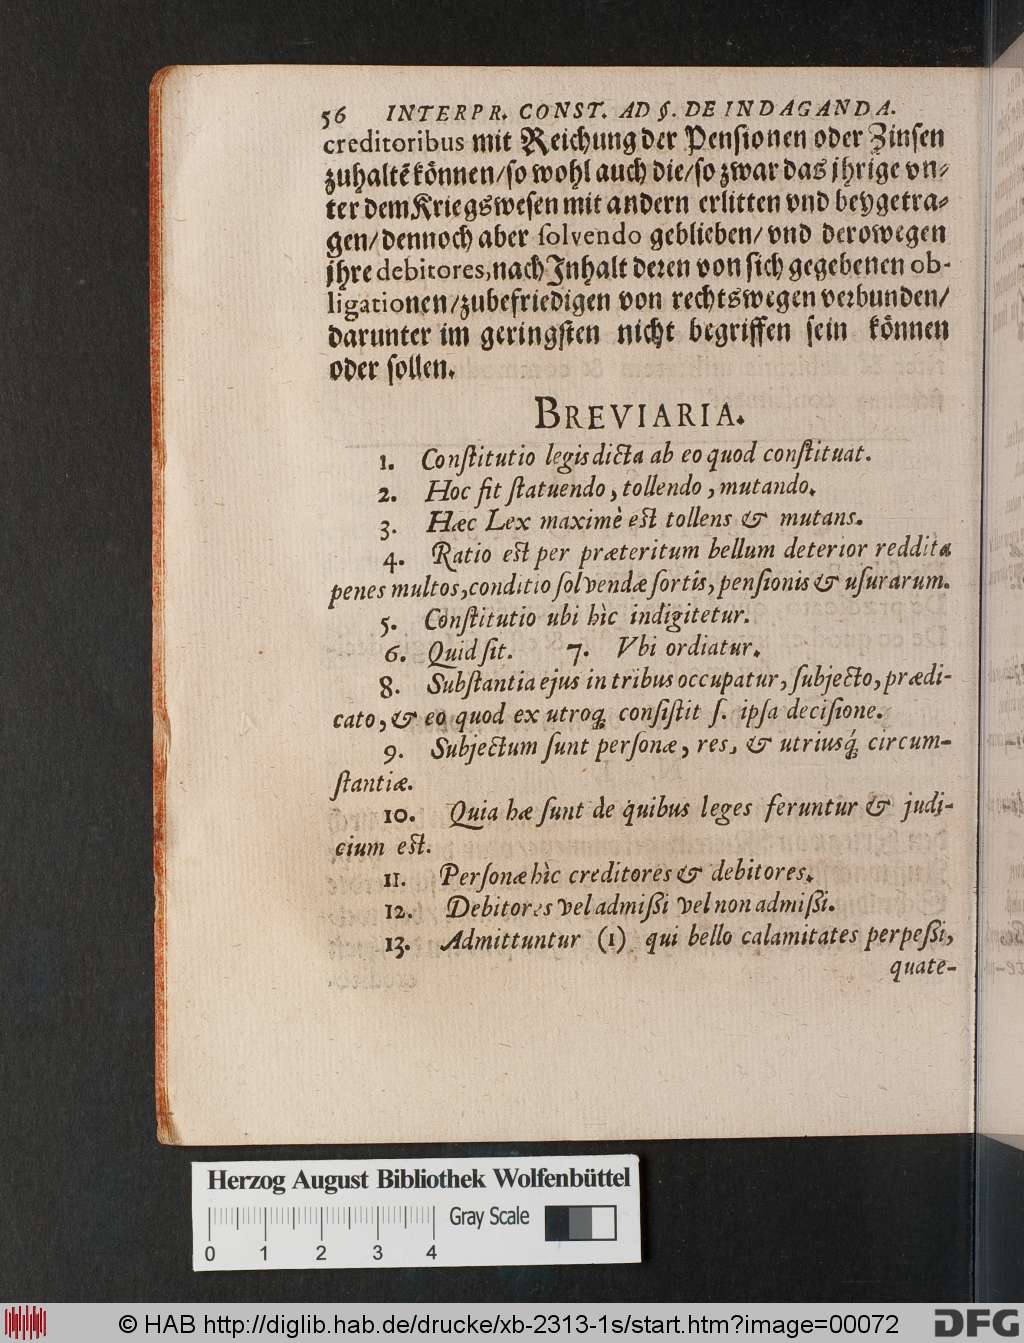 56 INTERPR. CONST. AD §. DE INDAGANDA.
creditoribus mit Reichung der Penſionen oder Zinſen
zuhaltē können/ſo wohl auch die/ſo zwar das jhrige vn⸗
ter dem Kriegsweſen mit andern erlitten vnd beygetra⸗
gen/dennoch aber ſolvendo geblieben/vnd derowegen
jhre debitores,nach Inhalt deren von ſich gegebenen ob-
ligationen/zubefriedigen von rechtswegen verbunden/
darunter im geringſten nicht begriffen ſein können
oder ſollen.
BREVIARIA.
1. Conſtitutio legis dicta ab eo quod conſtituat.
2. Hoc fit ſtatuendo, tollendo, mutando.
3. Hæc Lex maximè eſt tollens & mutans.
4. Ratio eſt per præteritum bellum deterior reddita
penes multos,conditio ſolvendæ ſortis, penſionis & uſurarum.
5. Conſtitutio ubi hìc indigitetur.
6. Quid ſit. 7. Vbi ordiatur.
8. Subſtantia ejus in tribus occupatur, ſubjecto, prædi-
cato, & eo quod ex utroq; conſiſtit ſ. ipſa deciſione.
9. Subjectum ſunt perſonæ, res, & utriusq́; circum-
ſtantiæ.
10. Quia hæ ſunt de quibus leges feruntur & judi-
cium eſt.
11. Perſonæ hìc creditores & debitores.
12. Debitores vel admiſſi vel non admiſſi.
13. Admittuntur (1) qui bello calamitates perpeſſi,
quate-
Herzog August Bibliothek Wolfenbüttel
Gray Scale
0 1 2 3 4
© HAB http://diglib.hab.de/drucke/xb-2313-1s/start.htm?image=00072
DFG